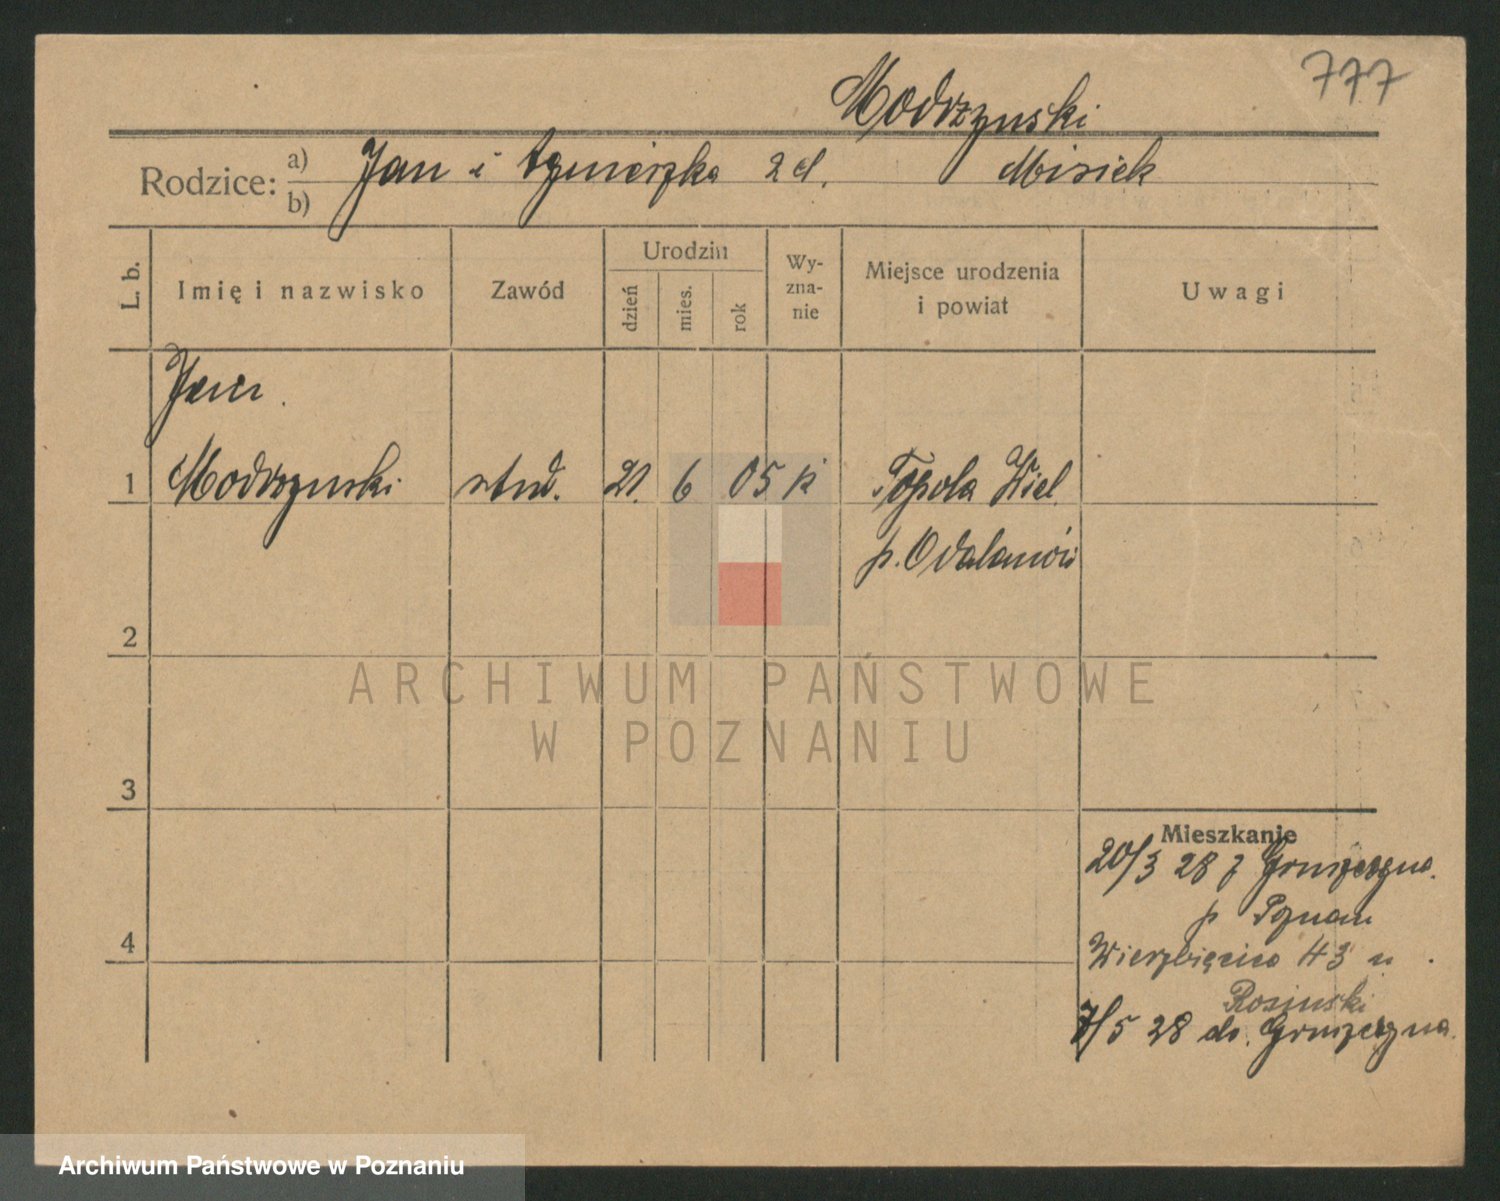 777
Modrzynski
Rodzice: a) Jan i Agnieszka z d. Misiek
b)
L. b.
Imię i nazwisko
Zawód
Urodzin
dzień
mies.
rok
Wy-
zna-
nie
Miejsce urodzenia
i powiat
Uwagi
Jan
1 Modrzynski stud. 21. 6 05 k Topola Wiel.
p. Odolanów
2
3
4
Mieszkanie
20/3 28 z
p Poznan
Wierzbięcice 43 u
Rosinski
7/5 28 do.
ARCHIWUM PAŃSTWOWE
W POZNANIU
Archiwum Państwowe w Poznaniu